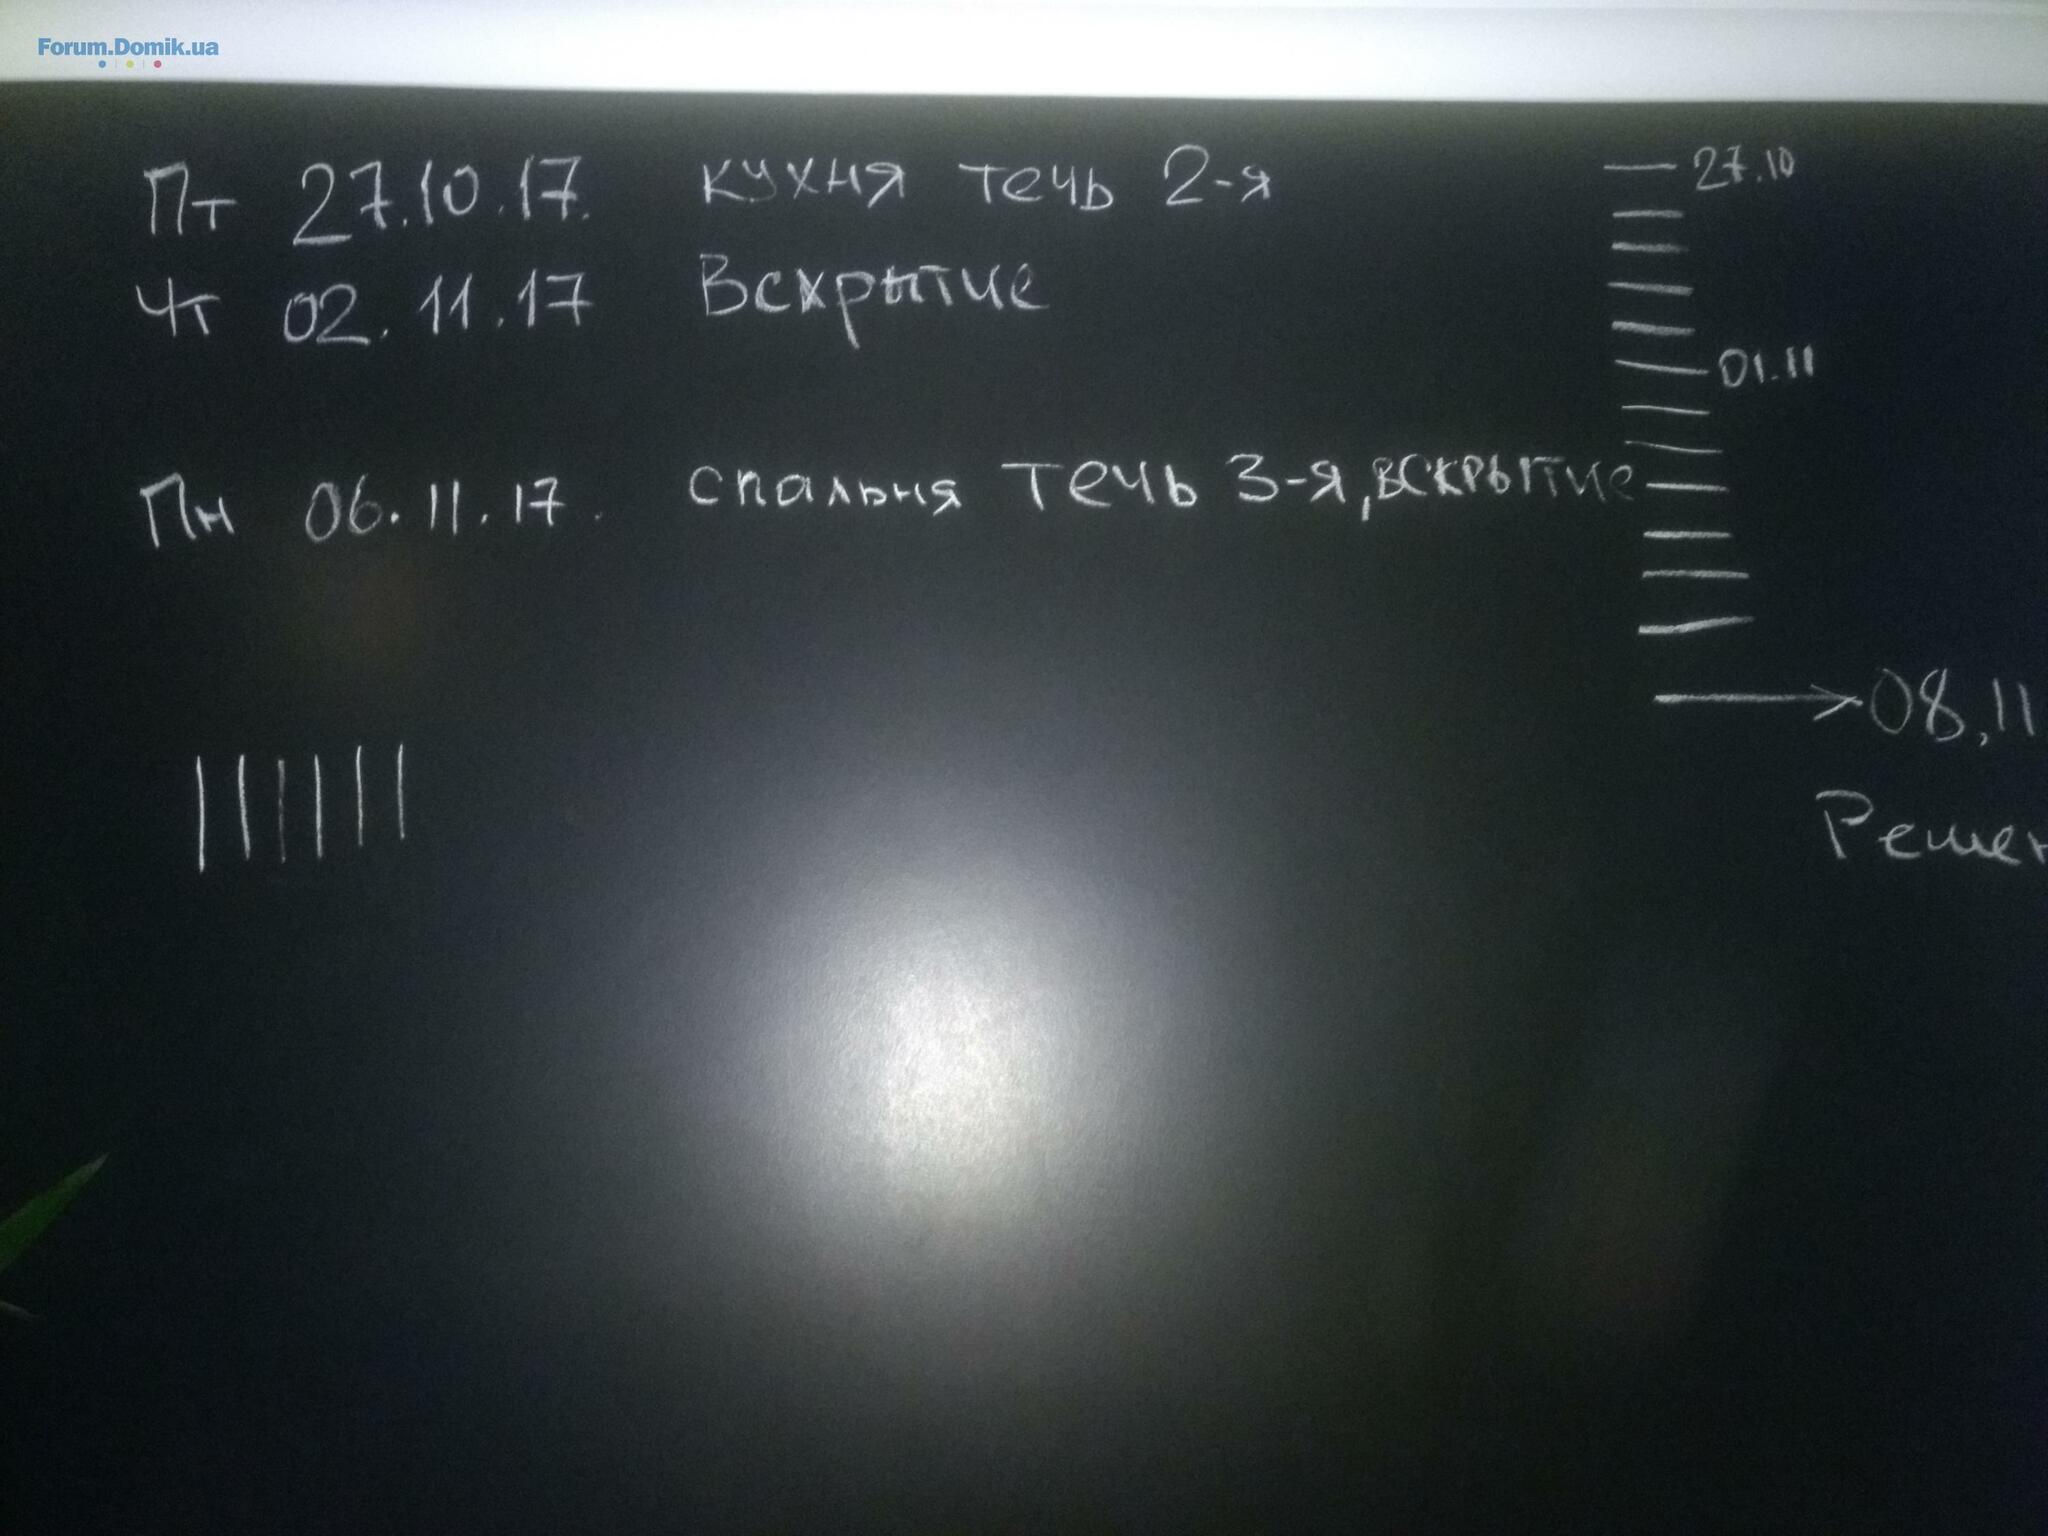 Forum.Domik.ua
Пт 27.10.17. кухня течь 2-я
Чт 02.11.17 Вскрытие
Пн 06.11.17. спальня течь 3-я, вскрытие
27.10
01.11
08.11